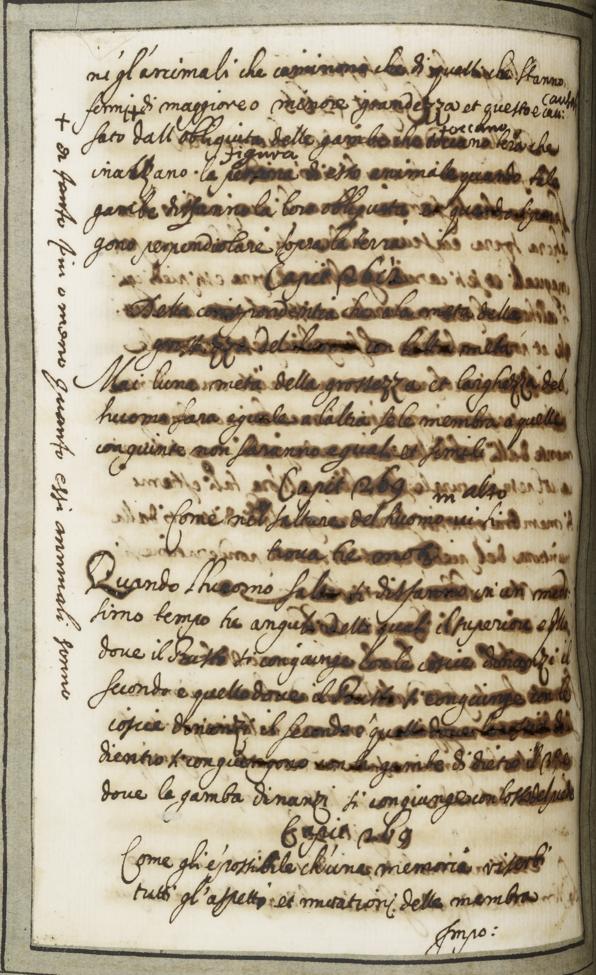 ni gl'arcimali che caminono che di quelli che stanno
fermi + di maggiore o minore grandezza et questo è cau:
causa
sato dall'obliquita delle gambe che toccano terà che
toccano
inalzano la persona di esso animale quando tale
figura
gambe disfanno la loro obliquita et quando si pon
gono perpendiolare sopra la terra
Capit 268
Della corrispondentia che a la metà della
grossezza del huomo con l'altra metà
Mai l'una metà della grossezza et larghezza del
huomo sara eguale a l'altra se le membra a quelle
congiunte non saranno eguali et simili
Capit 269
in alto
Come nel saltare del huomo vi si
trova tre moti
Quando l'huomo salta si disfanno in un mede
simo tempo tre anguli delli quali il superiore e ella
dove il Busto si congiunge con le coscie dinanzi il
secondo e quello dove il Busto si congiunge con le
coscie dinanzi il secondo e quello dove le coscie di
dietro si congiungono con le gambe di dietro il
dove la gamba dinanzi si congiunge con l'osso del
Capit 269
Come gli è possibile ch'una memoria riserbi
tutti gl'aspetti et mutationi delle membra
Impo:
+ di tanto piu o meno quanto essi animali sonno